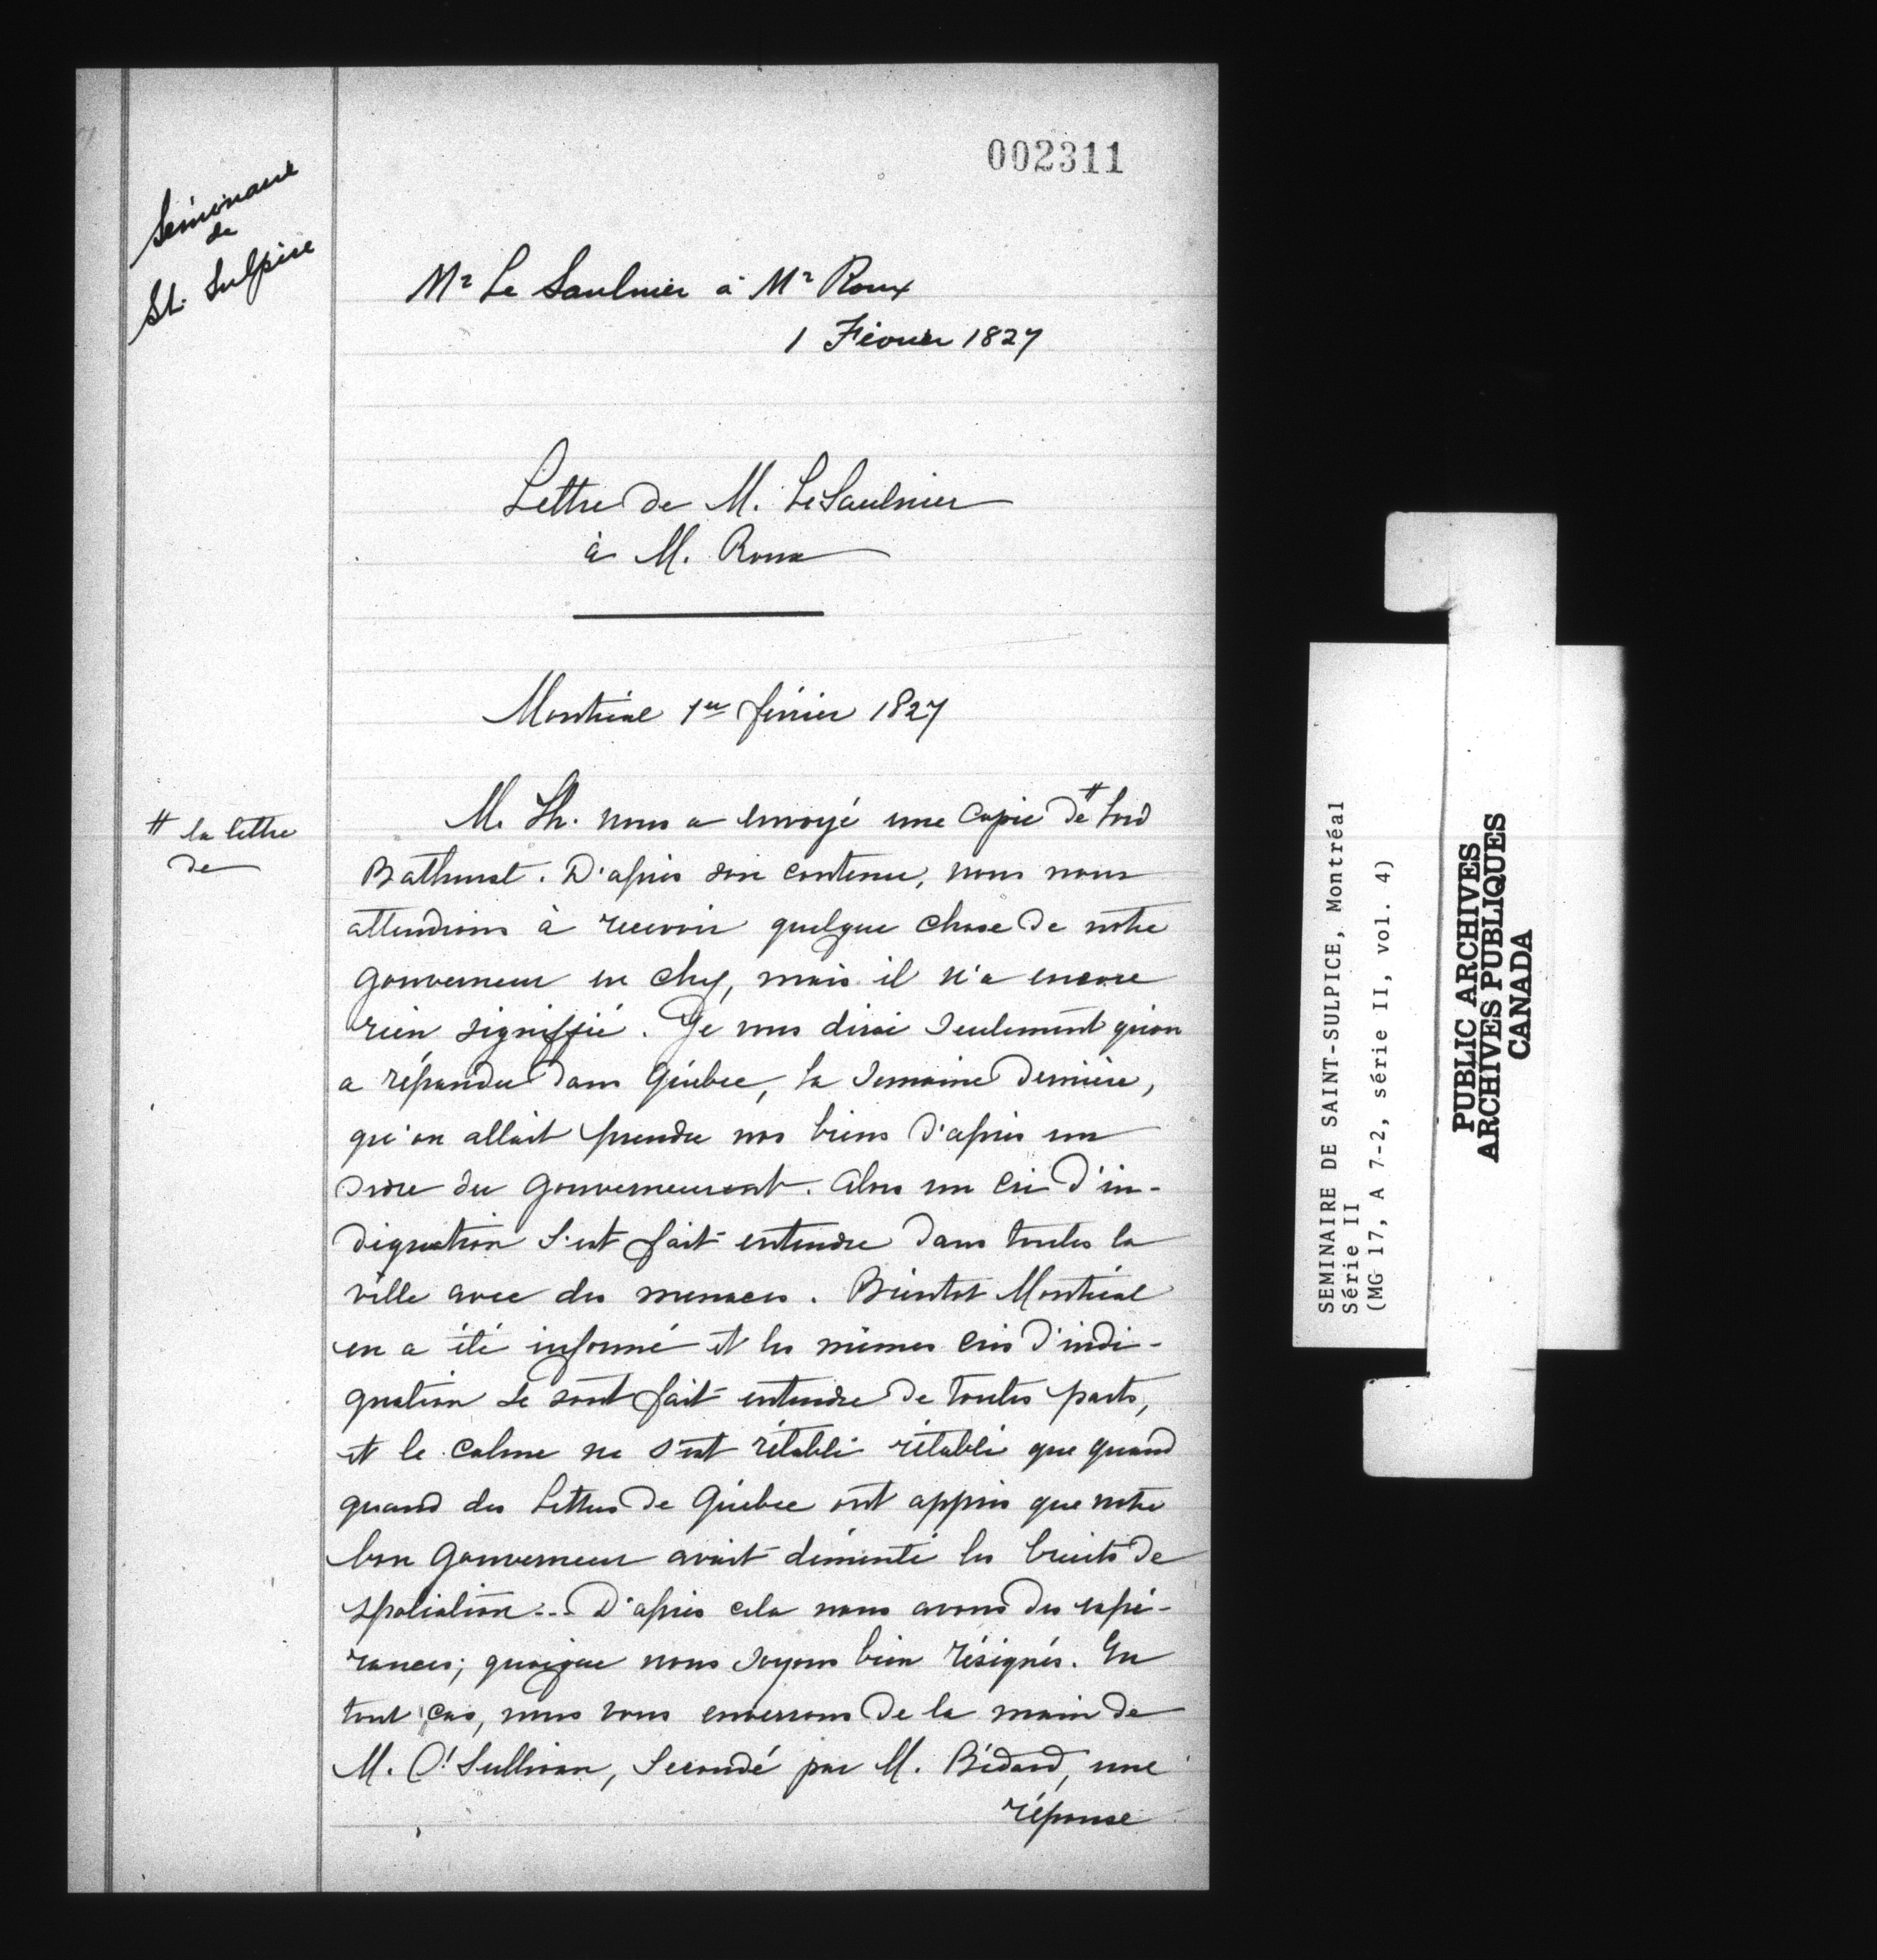 002311
Séminaire
de
St. Sulpice
Mr Le Saulnier à Mr Roux
1 Février 1827
Lettre de M. LeSaulnier
à M. Roux
Montréal 1er février 1827
# la lettre
de
M. Th. nous a envoyé une copie de # Lord
Bathurst. D'après son contenu, nous nous
attendions à recevoir quelque chose de notre
gouverneur en chef, mais il n'a encore
rien signifié. Je vous dirai seulement qu'on
a répandu dans Québec, la semaine dernière,
qu'on allait prendre nos biens d'après un
ordre du gouvernement. Alors un cri d'in-
dignation s'est fait entendre dans toutes la
ville avec des menaces. Bientot Montréal
en a été informé et les mêmes cris d'indi-
gnation se sont fait entendre de toutes parts,
et le calme ne s'est rétabli rétabli que quand
quand des lettres de Québec ont appris que notre
bon gouverneur avait démenti les bruits de
spoliation... D'après cela nous avons des espé-
rances; quoique nous soyons bien résignés. En
tout cas, nous vous enverrons de la main de
M. O'Sullivan, secondé par M. Bédard, une
réponse
SEMINAIRE DE SAINT-SULPICE, Montréal
Série II
(MG 17, A 7-2, série II, vol. 4)
PUBLIC ARCHIVES
ARCHIVES PUBLIQUES
CANADA